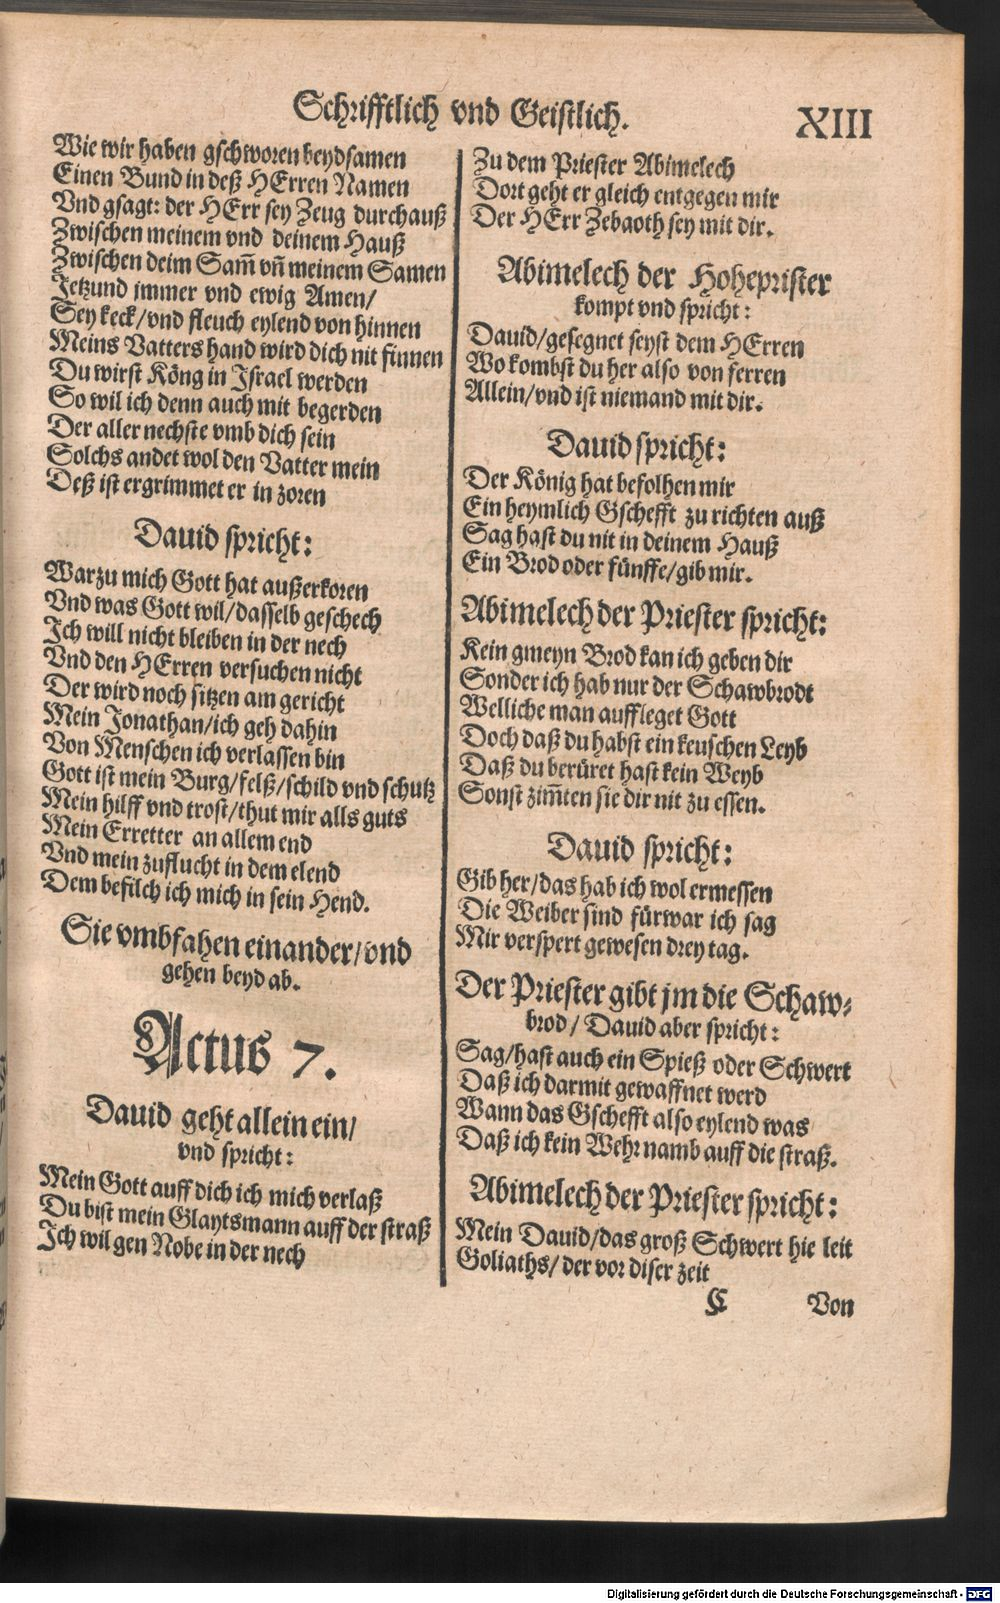 Schrifftlich vnd Geistlich.
XIII
Wie wir haben gschworen beydsamen
Einen Bund in deß HErren Namen
Vnd gsagt: der HErr sey Zeug durchauß
Zwischen meinem vnd deinem Hauß
Zwischen deim Sam̄ vn̄ meinem Samen
Jetzund jmmer vnd ewig Amen/
Sey keck/vnd fleuch eylend von hinnen
Meins Vatters hand wird dich nit finnen
Du wirst Köng in Jsrael werden
So wil ich denn auch mit begerden
Der aller nechste vmb dich sein
Solchs andet wol den Vatter mein
Deß ist ergrimmet er in zoren
Dauid spricht:
Warzu mich Gott hat außerkoren
Vnd was Gott wil/dasselb geschech
Jch will nicht bleiben in der nech
Vnd den HErren versuchen nicht
Der wird noch sitzen am gericht
Mein Jonathan/ich geh dahin
Von Menschen ich verlassen bin
Gott ist mein Burg/felß/schild vnd schutz
Mein hilff vnd trost/thut mir alls guts
Mein Erretter an allem end
Vnd mein zuflucht in dem elend
Dem befilch ich mich in sein Hend.
Sie vmbfahen einander/vnd
gehen beyd ab.
Actus 7.
Dauid geht allein ein/
vnd spricht:
Mein Gott auff dich ich mich verlaß
Du bist mein Glaytsmann auff der straß
Jch wil gen Nobe in der nech
Zu dem Priester Abimelech
Dort geht er gleich entgegen mir
Der HErr Zebaoth sey mit dir.
Abimelech der Hoheprister
kompt vnd spricht:
Dauid/gesegnet seyst dem HErren
Wo kombst du her also von ferren
Allein/vnd ist niemand mit dir.
Dauid spricht:
Der König hat befolhen mir
Ein heymlich Gschefft zu richten auß
Sag hast du nit in deinem Hauß
Ein Brod oder fünffe/gib mir.
Abimelech der Priester spricht:
Kein gmeyn Brod kan ich geben dir
Sonder ich hab nur der Schawbrodt
Welliche man auffleget Gott
Doch daß du habst ein keuschen Leyb
Daß du berüret hast kein Weyb
Sonst zim̄ten sie dir nit zu essen.
Dauid spricht:
Gib her/das hab ich wol ermessen
Die Weiber sind fürwar ich sag
Mir verspert gewesen drey tag.
Der Priester gibt jm die Schaw⸗
brod/ Dauid aber spricht:
Sag/hast auch ein Spieß oder Schwert
Daß ich darmit gewaffnet werd
Wann das Gschefft also eylend was
Daß ich kein Wehr namb auff die straß.
Abimelech der Priester spricht:
Mein Dauid/das groß Schwert hie leit
Goliaths/ der vor diser zeit
C
Von
Digitalisierung gefördert durch die Deutsche Forschungsgemeinschaft - DFG